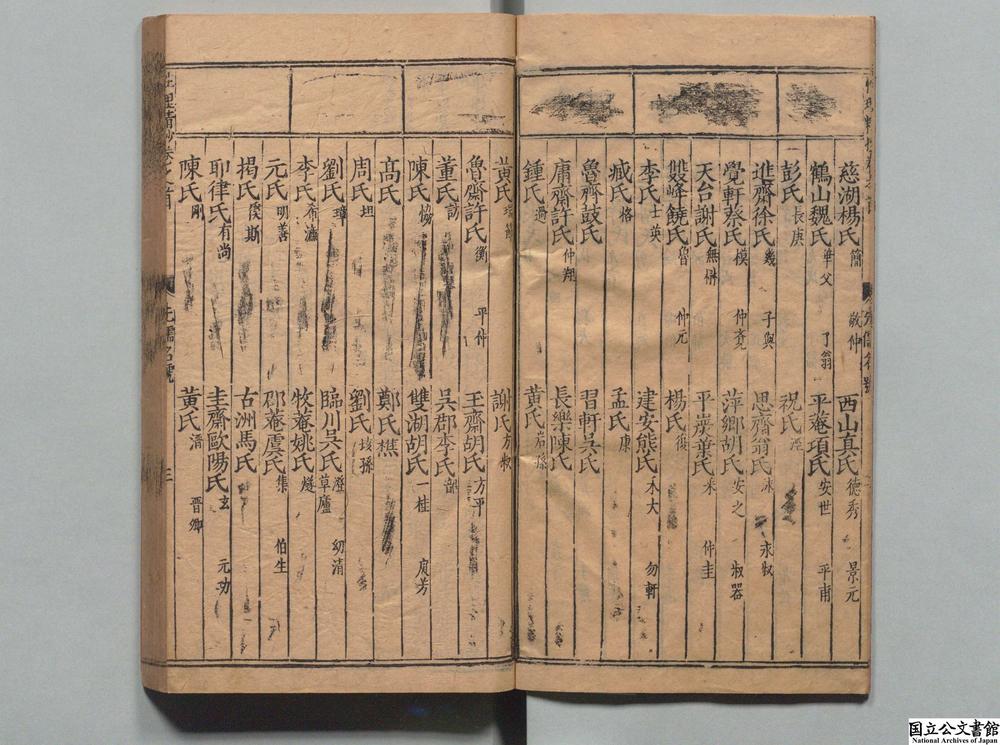 慈湖楊氏簡 敬仲 西山真氏德秀 景元
鶴山魏氏華父 了翁 平菴項氏安世 平甫
彭氏長庚 祝氏
進齋徐氏幾 子與 思齋翁氏泳 永叔
覺軒蔡氏模 仲覺 萍鄉胡氏安之 叔器
天台謝氏無楙 平巖葉氏采 仲圭
雙峰饒氏魯 仲元 楊氏復
李氏士英 建安熊氏禾大 勿軒
臧氏格 孟氏康
魯齊鼓氏 習軒吳氏
庸齋許氏仲翔 長樂陳氏
鍾氏過 黃氏岩孫
黃氏瑞節 謝氏方叔
魯齋許氏衡 平仲 玉齋胡氏方平
董氏 吳郡李氏韶
陳氏 雙湖胡氏一桂 庭芳
高氏 鄭氏樵
周氏坦 劉氏垓孫
劉氏璋 臨川吳氏澄草廬 幼清
李氏希濂 牧菴姚氏燧
元氏明善 邵菴虞氏集 伯生
揭氏傒斯 古洲馬氏
耶律氏有尚 圭齋歐陽氏玄 元功
陳氏剛 黃氏溍 晋卿
先儒名號
三
国立公文書館
National Archives of Japan